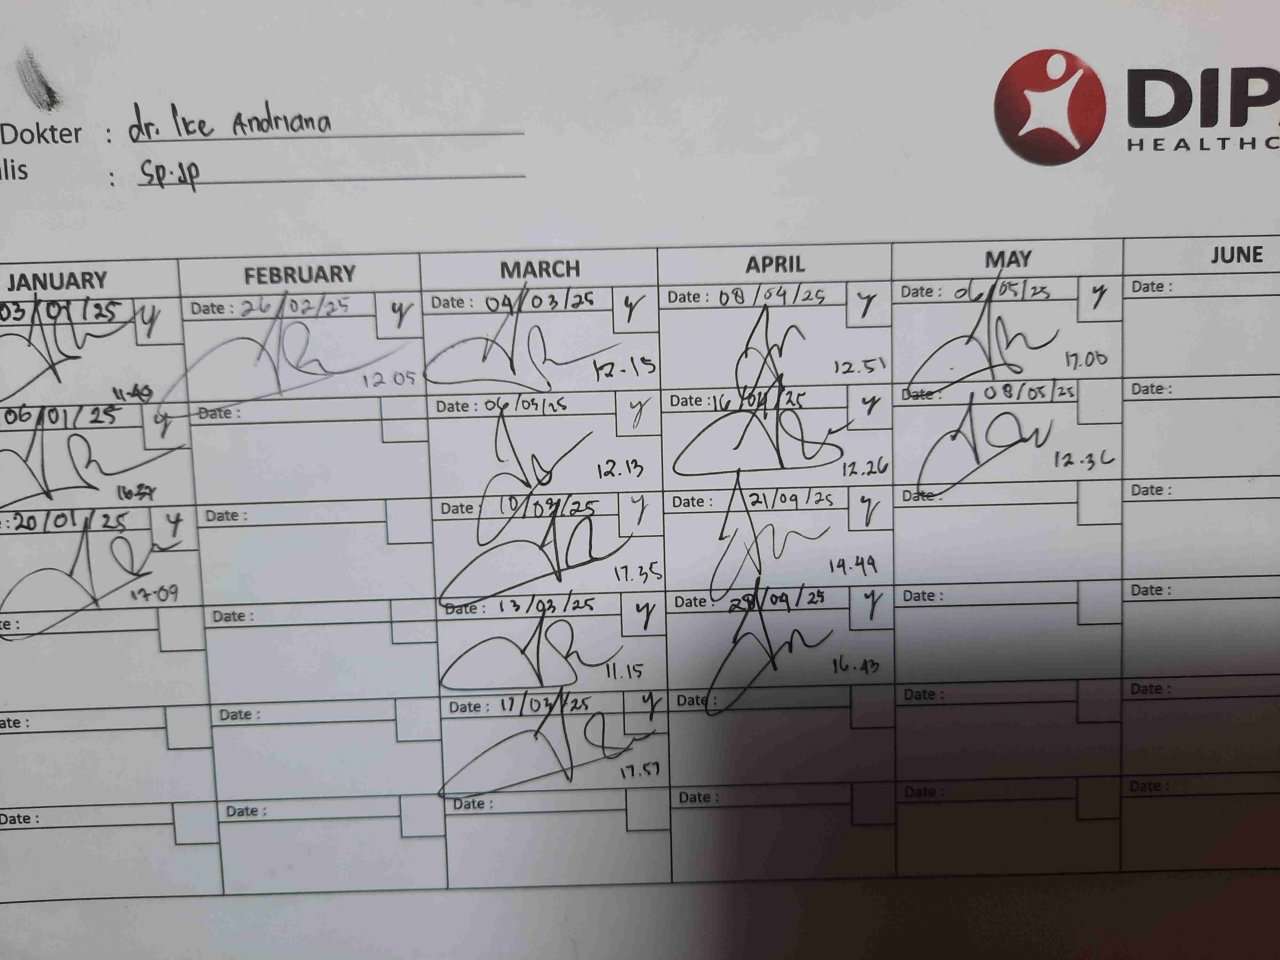 Dokter : dr. Ike Andriana
lis : Sp.JP
DIP
HEALTHC
JANUARY FEBRUARY MARCH APRIL MAY JUNE
03/01/25 y Date : 26/02/25 y Date : 04/03/25 y Date : 08/04/25 y Date : 06/05/25 y Date :
12.05 12.15 12.51 17.00
06/01/25 y Date : Date : 06/03/25 y Date : 16/04/25 y Date : 08/05/25 Date :
16.37 12.13 12.26 12.36
: 20/01/25 y Date : Date : 10/03/25 y Date : 21/04/25 y Date : Date :
17.09 17.35 14.44
te : Date : Date : 13/03/25 y Date : 28/04/25 y Date : Date :
11.15 16.43
ate : Date : Date : 17/03/25 y Date : Date : Date :
17.57
Date : Date : Date : Date : Date : Date :